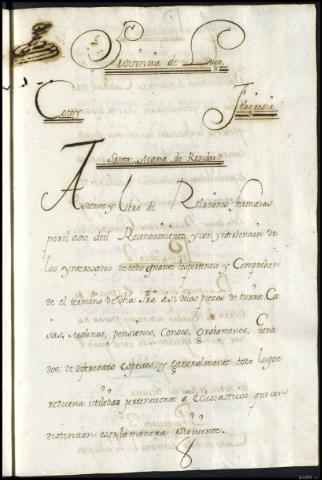 Provincia de Lugo.
Coto y Feligresia
Santa Maria de Rendar
Asiento y Libro de Relaciones formadas
por el acto del Reconocimiento y con yntervencion de
los ynteresados de todo quanto pertenece y Comprehen
de el termino de dha fra asi de las piezas de tierra, Ca
sas, Molinos, pensiones, Censos, Gana
dos de diferentes especies, y Generalmente todo lo que
redito utilidad perteneciente a Eclesiasticos que con
distincion es en la manera Siguiente.